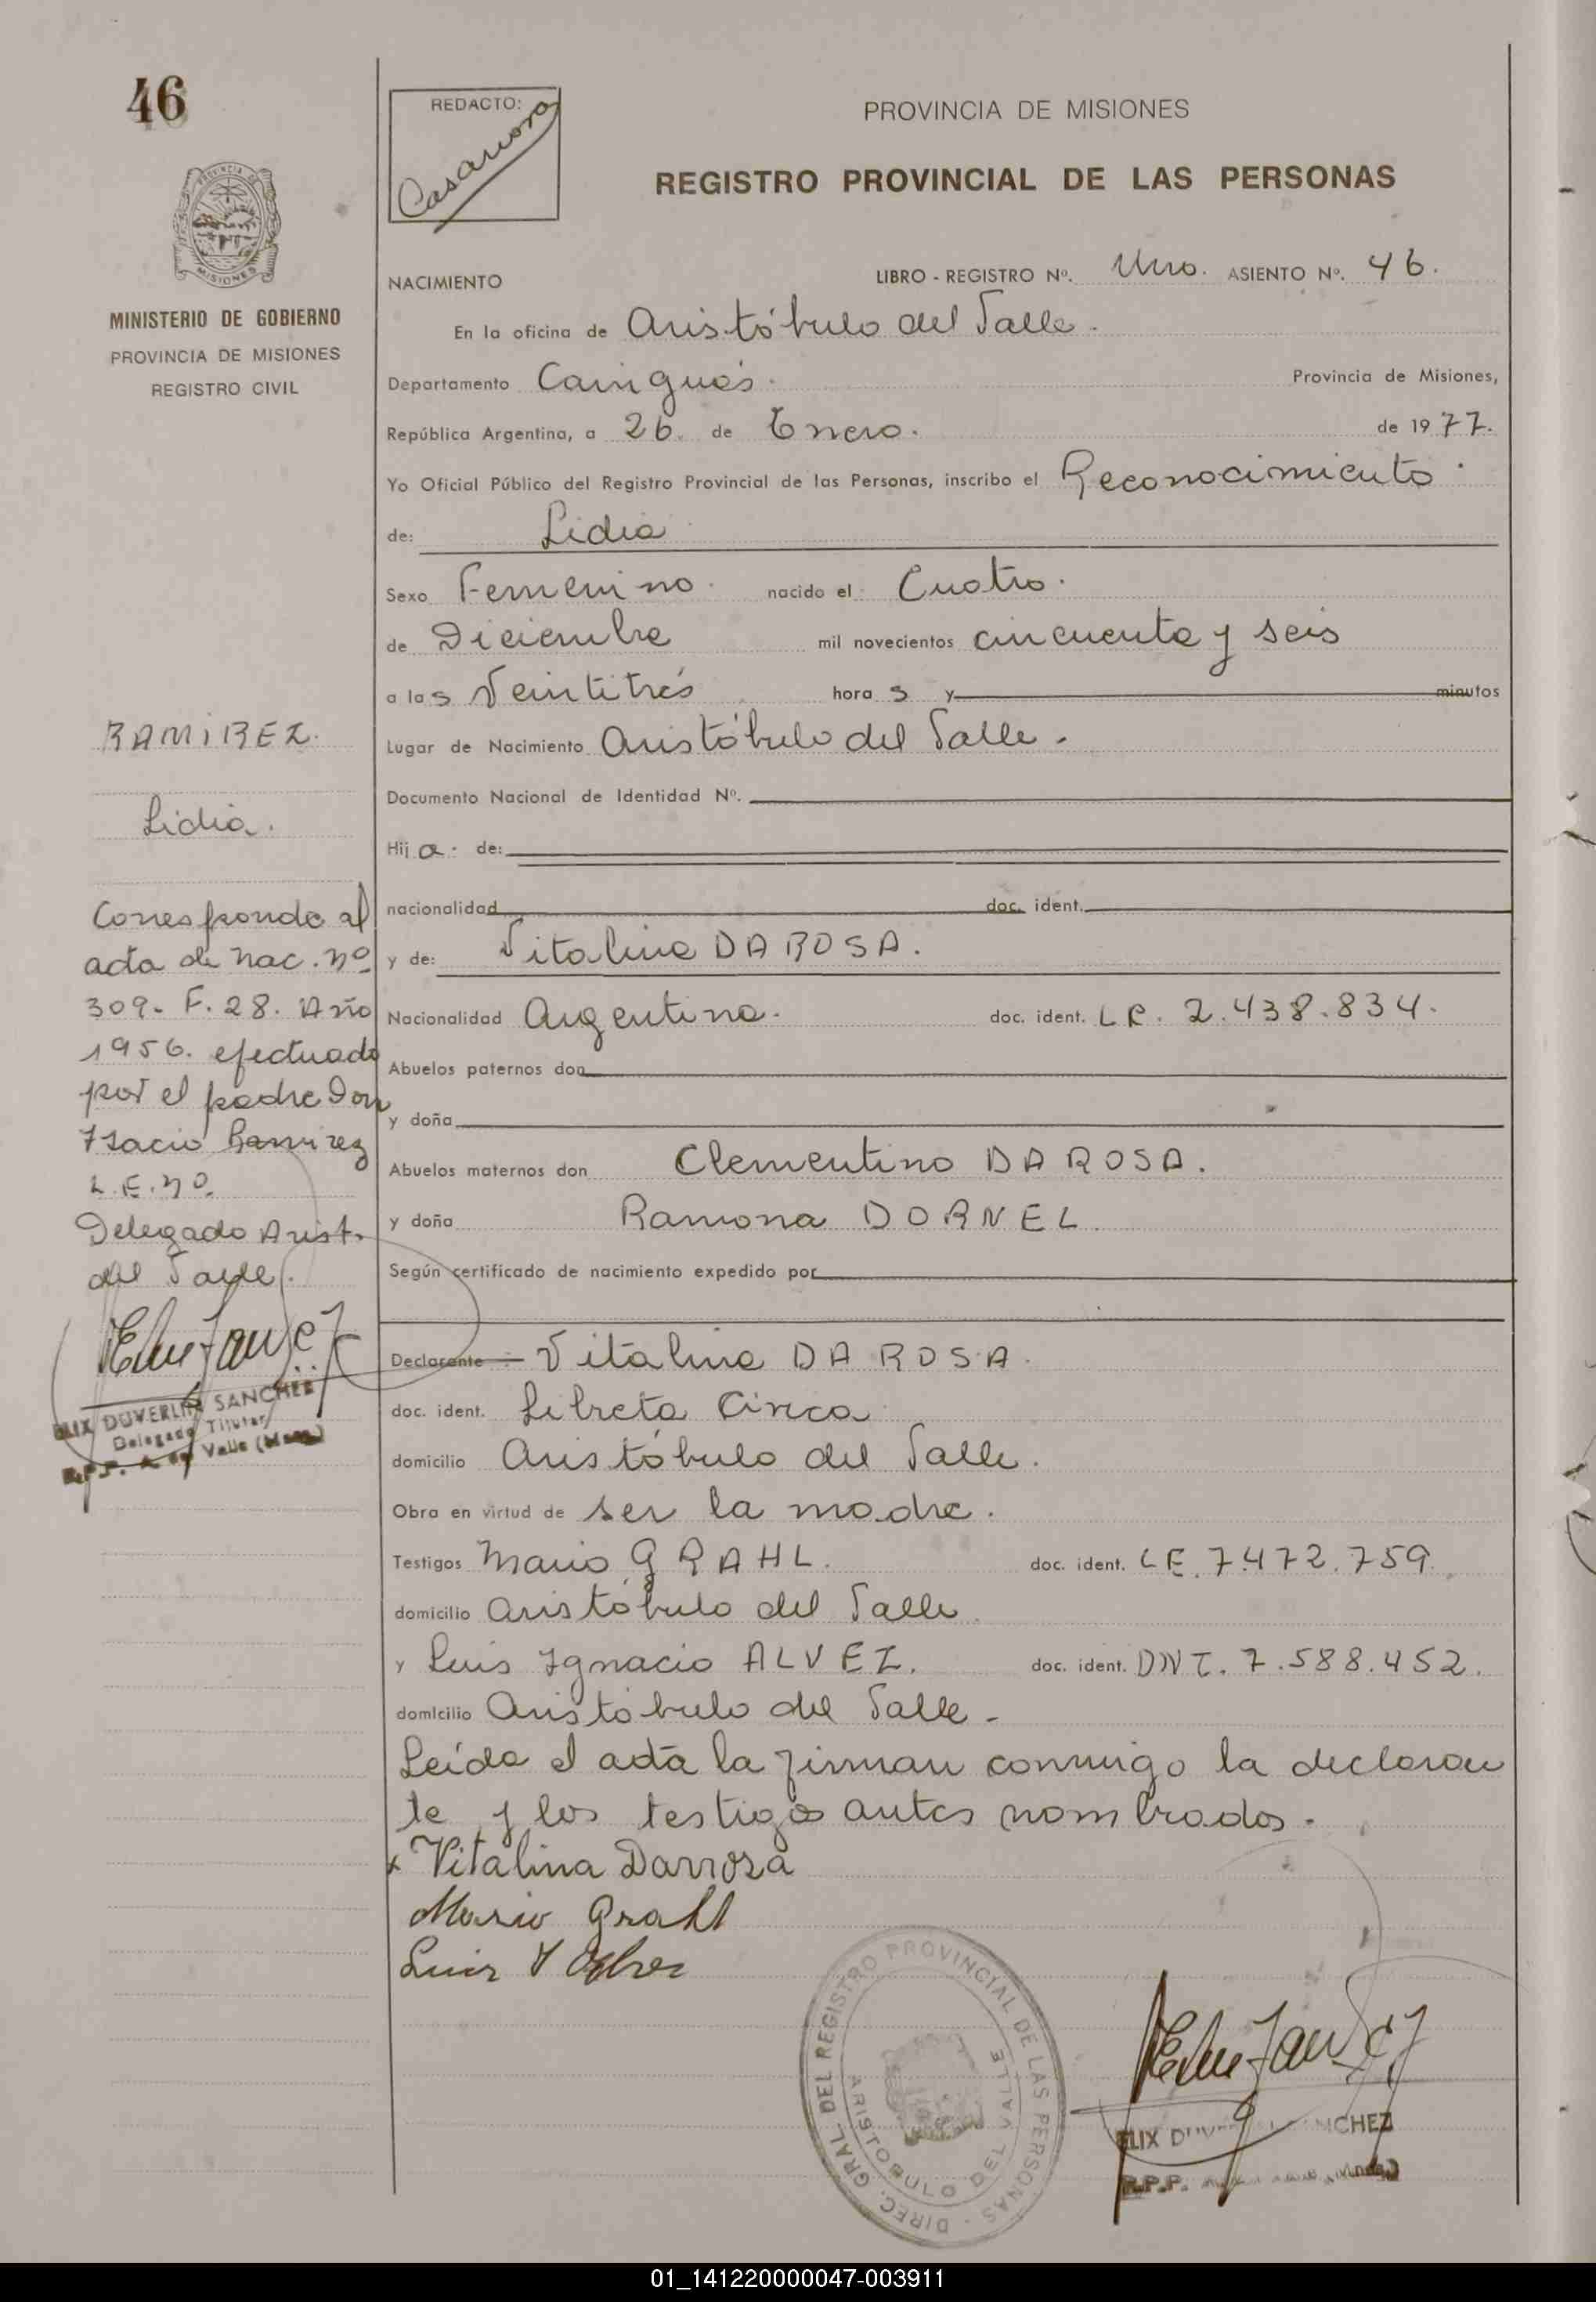 46
REDACTO:
Casanova
PROVINCIA DE MISIONES
REGISTRO PROVINCIAL DE LAS PERSONAS
MINISTERIO DE GOBIERNO
PROVINCIA DE MISIONES
REGISTRO CIVIL
NACIMIENTO LIBRO - REGISTRO Nº. Uno. ASIENTO Nº. 46.
En la oficina de Aristóbulo del Valle.
Departamento Cainguás. Provincia de Misiones,
República Argentina, a 26. de Enero. de 1977.
Yo Oficial Público del Registro Provincial de las Personas, inscribo el Reconocimiento.
de: Lidia
Sexo Femenino. nacido el Cuatro.
de Diciembre mil novecientos cincuenta y seis
a las Veintitrés horas y minutos
Lugar de Nacimiento Aristóbulo del Valle.
Documento Nacional de Identidad Nº.
Hija. de:
nacionalidad doc. ident.
y de: Vitalina DA ROSA.
Nacionalidad Argentina. doc. ident. LC. 2.438.834.
Abuelos paternos don
y doña
Abuelos maternos don Clementino DA ROSA.
y doña Ramona DORNEL
Según certificado de nacimiento expedido por
Declarante - Vitalina DA ROSA.
doc. ident. Libreta Cívica
domicilio Aristóbulo del Valle.
Obra en virtud de ser la madre.
Testigos Mario GRAHL. doc. ident. LE. 7.472.759.
domicilio Aristóbulo del Valle
y Luis Ignacio ALVEZ. doc. ident. DNI. 7.588.452.
domicilio Aristóbulo del Valle -
Leída el acta la firman conmigo la declaran
te y los testigos antes nombrados.
x Vitalina Darrosa
Mario Grahl
Luis I
RAMIREZ.
Lidia.
Corresponde al
acta de nac. nº
309. F. 28. Año
1956. efectuado
por el padre Don
Isacio Ramirez
L.E. nº
Delegado Arist.
del Valle.
ELIX DUVERLIN SANCHEZ
Delegado Titular
R.P.P. A. del Valle (Mnes.)
DIREC. GRAL. DEL REGISTRO PROVINCIAL DE LAS PERSONAS
ARISTOBULO DEL VALLE
ELIX
R.P.P.
01_141220000047-003911